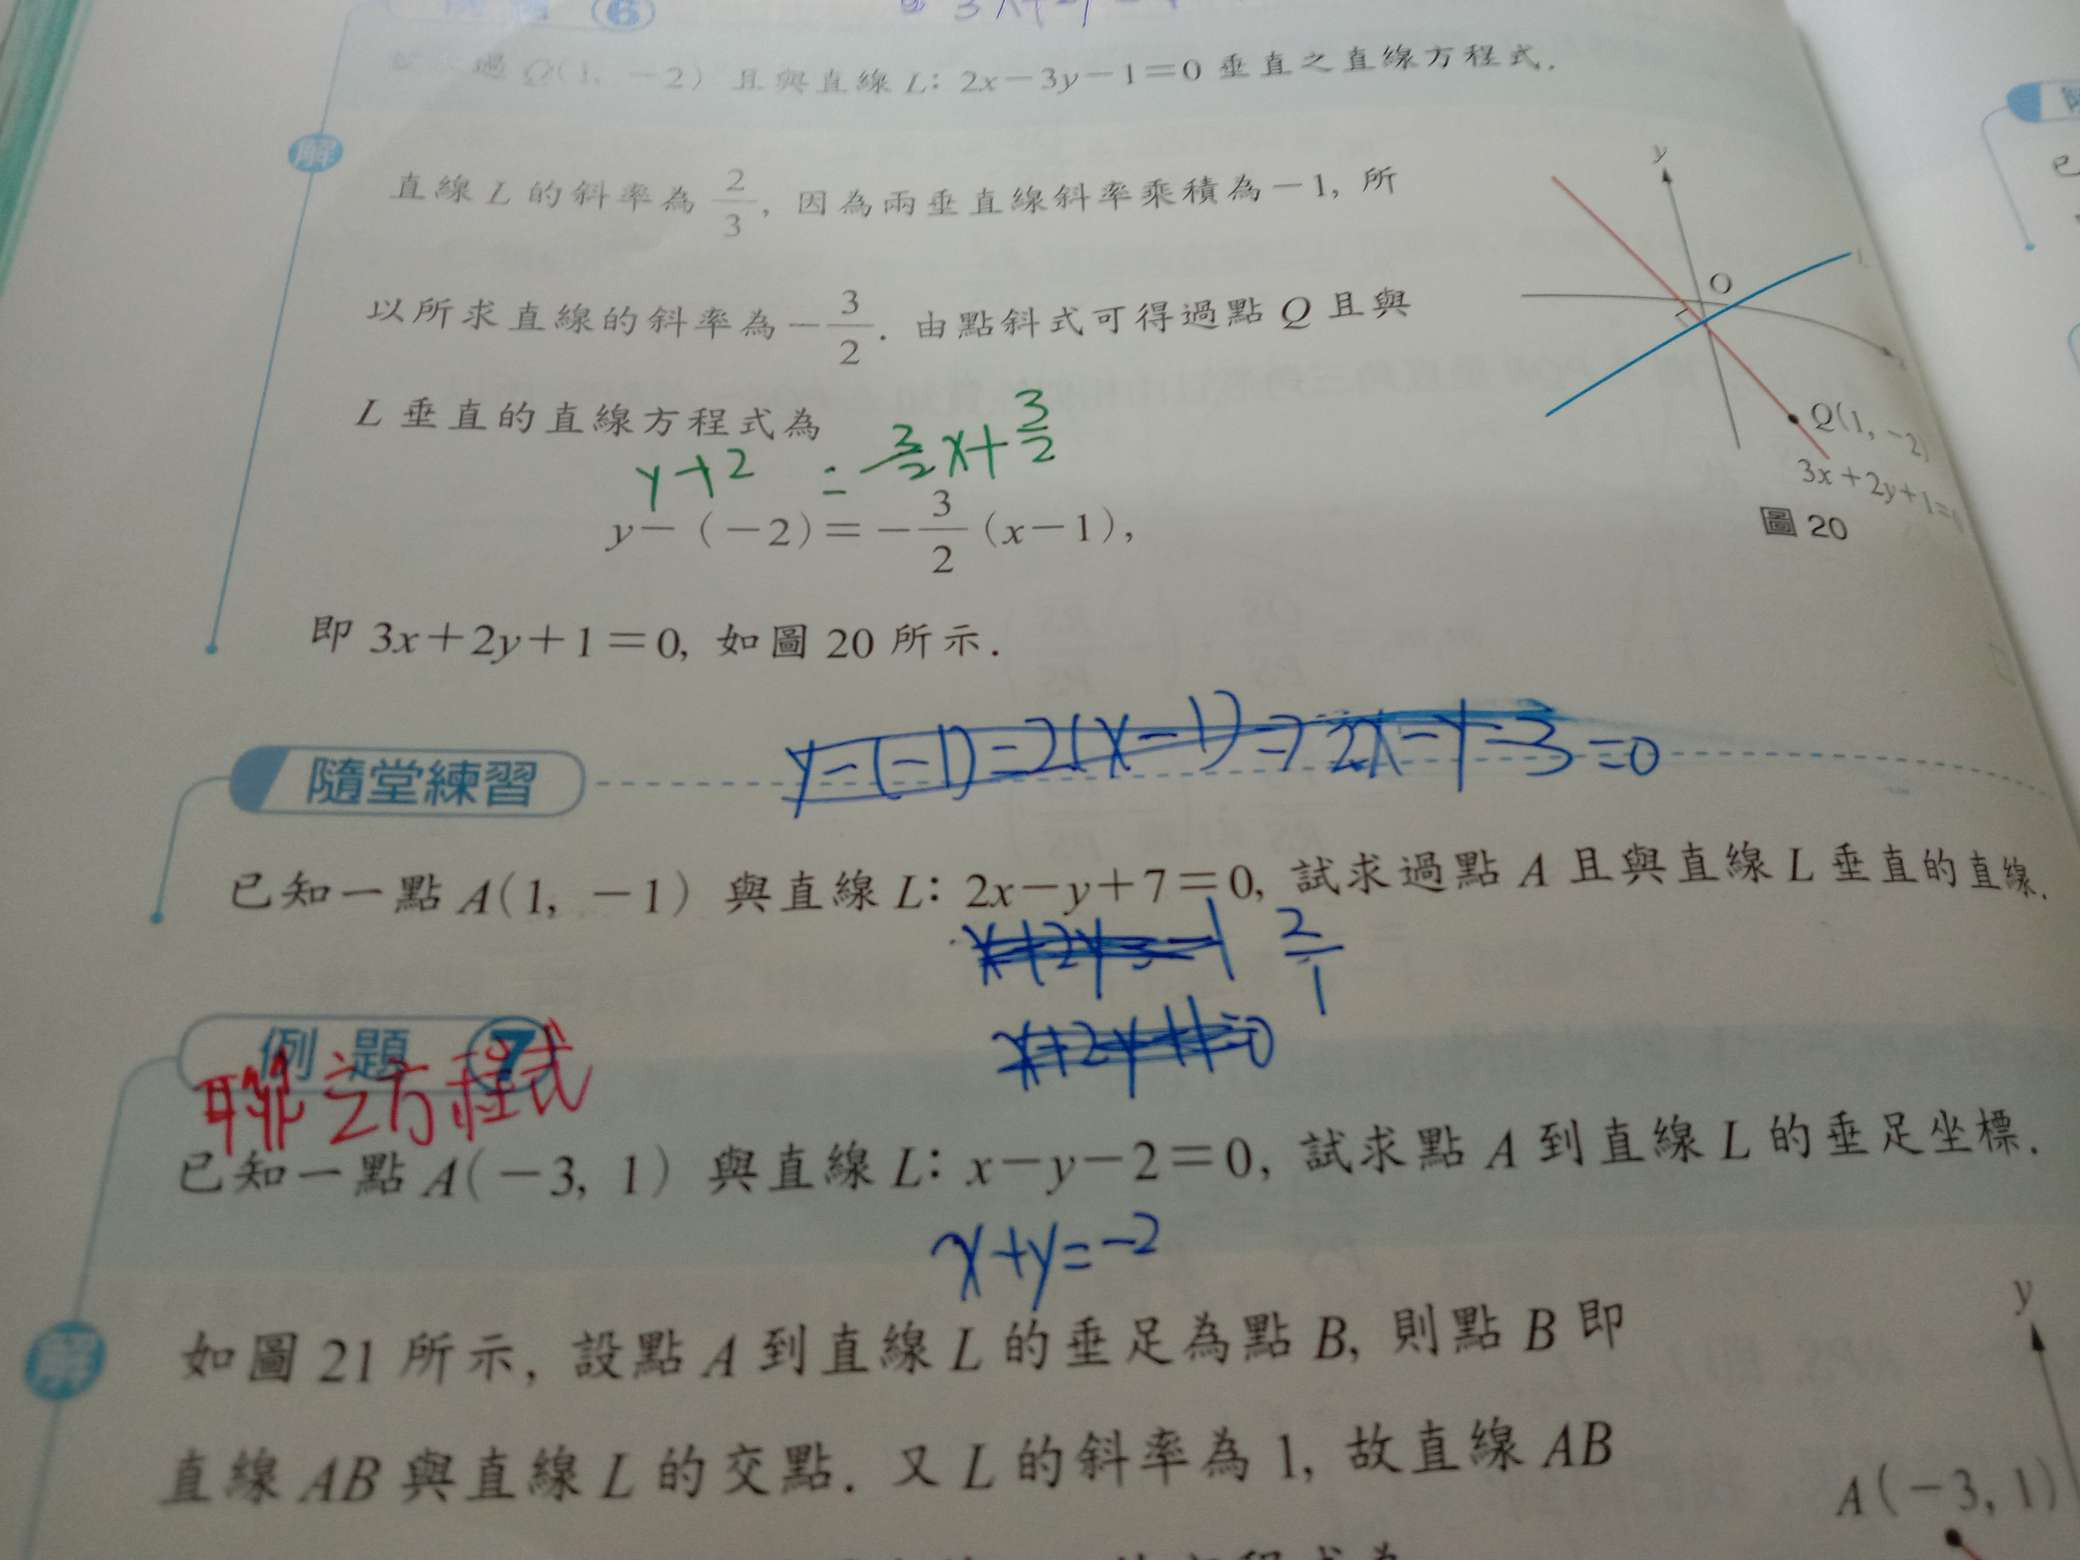 例題 6
過 Q(1, -2) 且與直線 L: 2x-3y-1=0 垂直之直線方程式.
解
直線 L 的斜率為 2/3, 因為兩垂直線斜率乘積為 -1, 所
以所求直線的斜率為 -3/2. 由點斜式可得過點 Q 且與
L 垂直的直線方程式為
y+2 = -3/2x+3/2
y-(-2)=-3/2(x-1),
即 3x+2y+1=0, 如圖 20 所示.
y
O
Q(1, -2)
3x+2y+1=0
圖 20
y-(-1)=2(x-1)=> 2x-y-3=0
隨堂練習
已知一點 A(1, -1) 與直線 L: 2x-y+7=0, 試求過點 A 且與直線 L 垂直的直線.
2/1
x+2y+1=0
例題 7
聯立方程式
已知一點 A(-3, 1) 與直線 L: x-y-2=0, 試求點 A 到直線 L 的垂足坐標.
x+y=-2
解
如圖 21 所示, 設點 A 到直線 L 的垂足為點 B, 則點 B 即
直線 AB 與直線 L 的交點. 又 L 的斜率為 1, 故直線 AB
y
A(-3, 1)